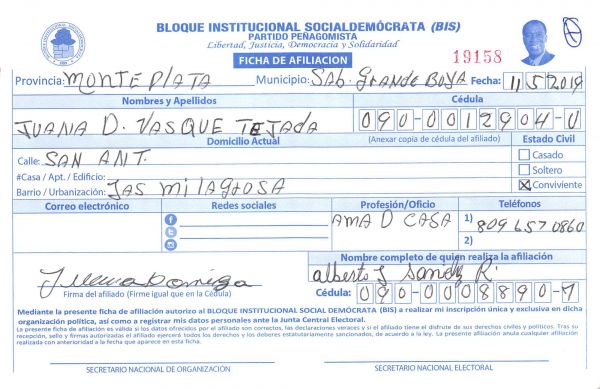 BLOQUE INSTITUCIONAL SOCIALDEMÓCRATA (BIS)
PARTIDO PEÑAGOMISTA
Libertad, Justicia, Democracia y Solidaridad
FICHA DE AFILIACION
19158
Provincia: MONTE PLATA Municipio: SAB. GRANDE BOYA Fecha: 11/5/2019
Nombres y Apellidos Cédula
JUANA D. VASQUE TEJADA 090-0012904-0
Domicilio Actual (Anexar copia de cédula del afiliado) Estado Civil
Calle: SAN ANT. Casado
#Casa / Apt. / Edificio: Soltero
Barrio / Urbanización: LAS MILAGROSA X Conviviente
Correo electrónico Redes sociales Profesión/Oficio Teléfonos
AMA D CASA 1) 809 657 0860
2)
Nombre completo de quien realiza la afiliación
alberto J R.
Firma del afiliado (Firme igual que en la Cédula) Cédula: 090-0008890-7
Mediante la presente ficha de afiliación autorizo al BLOQUE INSTITUCIONAL SOCIAL DEMÓCRATA (BIS) a realizar mi inscripción única y exclusiva en dicha
organización política, así como a registrar mis datos personales ante la Junta Central Electoral.
La presente ficha de afiliación es válida si los datos ofrecidos por el afiliado son correctos, las declaraciones veraces y si el afiliado tiene el disfrute de sus derechos civiles y políticos. Tras su
recepción, sello y firmas autorizadas el afiliado ejercerá todos los derechos y los deberes estatutariamente sancionados, de acuerdo a la ley. La presente afiliación anula cualquier afiliación
realizada con anterioridad a la fecha que aparece en esta ficha.
SECRETARIO NACIONAL DE ORGANIZACIÓN SECRETARIO NACIONAL ELECTORAL